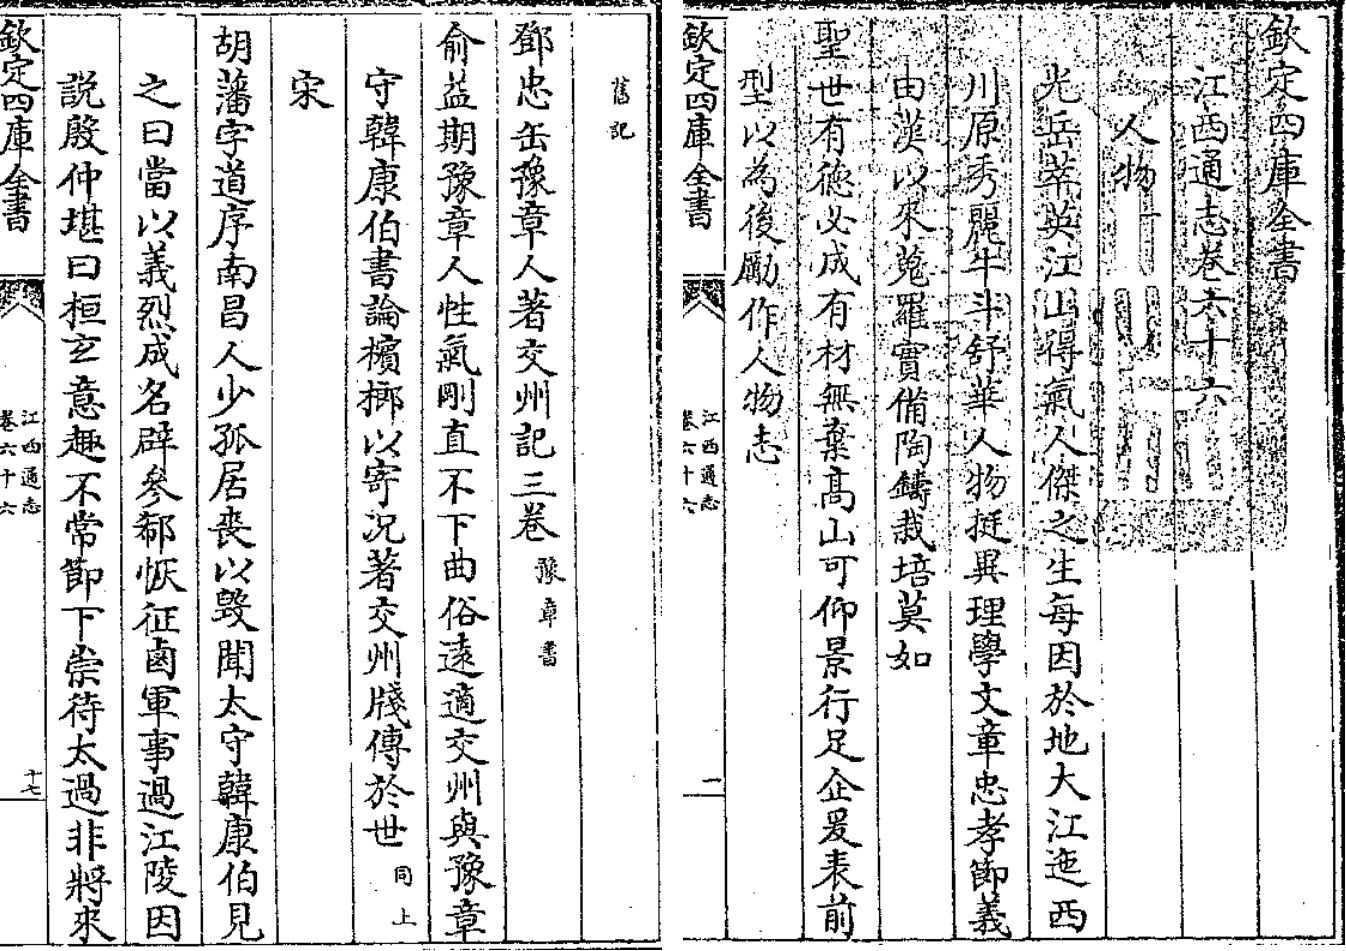 欽定四庫全書
江西通志卷六十六
人物一
光岳萃英江山得氣人傑之生每因於地大江迤西
川原秀麗牛斗舒華人物挺異理學文章忠孝節義
由漢以來蒐羅實備陶鑄栽培莫如
聖世有德必成有材無棄高山可仰景行足企爰表前
型以為後勵作人物志
欽定四庫全書
江西通志
卷六十六
一
舊記
鄧忠缶豫章人著交州記三卷豫章書
俞益期豫章人性氣剛直不下曲俗遠適交州與豫章
守韓康伯書論檳榔以寄况著交州牋傳於世同上
宋
胡藩字道序南昌人少孤居喪以毀聞太守韓康伯見
之曰當以義烈成名辟參郗恢征鹵軍事過江陵因
説殷仲堪曰桓𤣥意趣不常節下崇待太過非將來
欽定四庫全書
江西通志
卷六十六
十七